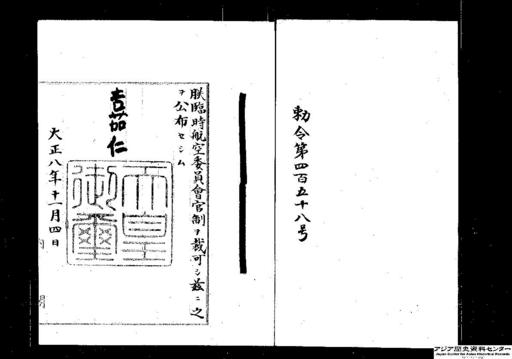 勅令第四百五十八号
朕臨時航空委員會官制ヲ裁可シ茲ニ之
ヲ公布セシム
嘉仁
天皇御璽
大正八年十一月四日
アジア歴史資料センター
Japan Center for Asian Historical Records